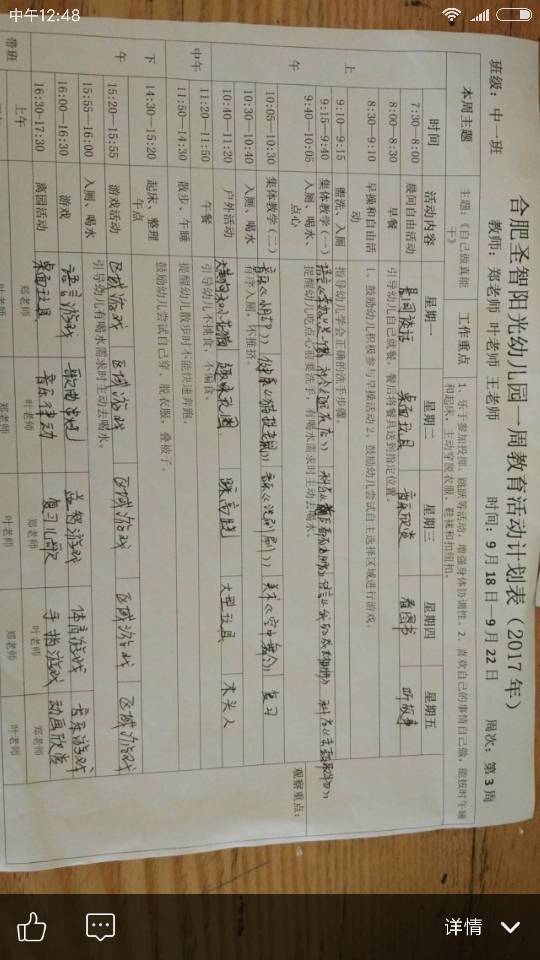 中午12:48
合肥圣智阳光幼儿园一周教育活动计划表（2017年）
班级：中一班 教师：郑老师 叶老师 王老师 时间：9月18日—9月22日 周次：第3周
本周主题 主题：《自己做真能干》 工作重点 1、乐于参加投掷、跳跃等活动，增强身体协调性。2、喜欢自己的事情自己做，能按时午睡和起床，主动穿脱衣服、鞋袜和扣纽扣。
时间 活动内容 星期一 星期二 星期三 星期四 星期五
上午
7:30—8:00 晨间自由活动 晨间谈话 桌面玩具 音乐欣赏 看图书 听故事
8:00—8:30 早餐 引导幼儿自己就餐，餐后将餐具送到指定位置。
8:30—9:10 早操和自由活动 1、鼓励幼儿积极参与早操活动2、鼓励幼儿尝试自主选择区域进行游戏。
9:10—9:15 盥洗、入厕 指导幼儿学会正确的洗手步骤。
9:15—9:40 集体教学（一）
9:40—10:05 入厕、喝水、点心 提醒幼儿吃点心前要洗手，有喝水需求时主动去喝水。
10:05—10:30 集体教学（二） 复习
10:30—10:40 入厕、喝水 有序入厕，不推挤。
10:40—11:20 户外活动 大型玩具 木头人
中午
11:20—11:50 午餐 引导幼儿不挑食，不偏食。
11:50—14:30 散步、午睡 提醒幼儿散步时不能快速奔跑。
下午
14:30—15:20 起床、整理 午点 鼓励幼儿尝试自己穿、脱衣服，叠被子。
15:20—15:55 游戏活动 区域游戏 区域游戏 区域游戏 区域游戏 区域游戏
15:55—16:00 入厕、喝水 引导幼儿有喝水需求时主动去喝水。
16:00—16:30 游戏 语言游戏 歌曲串烧 益智游戏 体育游戏 音乐游戏
16:30—17:30 离园活动 桌面玩具 音乐律动 复习儿歌 手指游戏 动画欣赏
带班 上午 郑老师 叶老师 郑老师 叶老师 郑老师
叶老师 郑老师 叶老师 郑老师 叶老师
观察重点：
详情